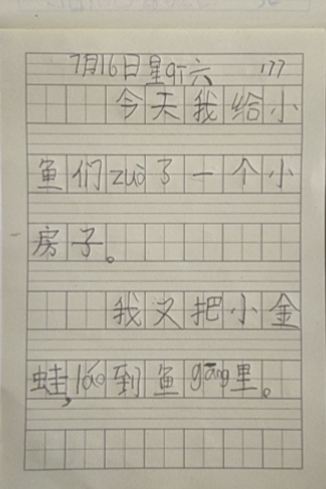 7月16日星qī六
今天我给小
鱼们zuò了一个小
房子。
我又把小金
蛙,lāo到鱼gāng里。